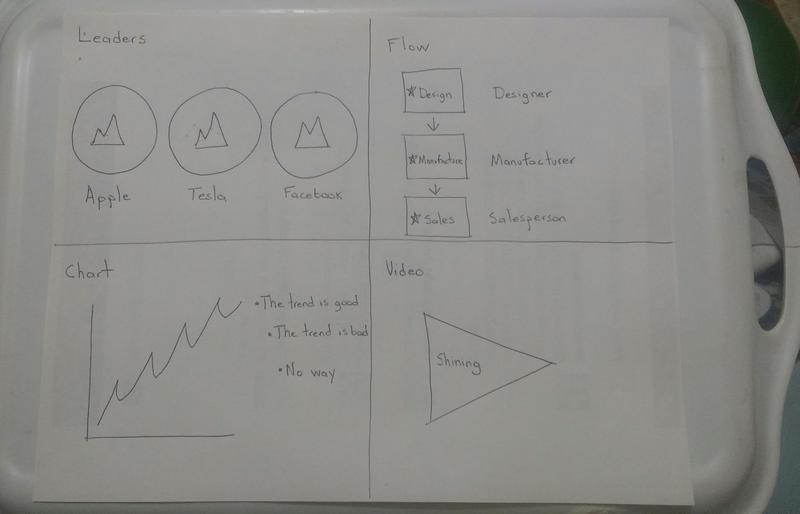 Leaders
Apple
Tesla
Facebook
Flow
☆ Design
Designer
☆ Manufacture
Manufacturer
☆ Sales
Salesperson
Chart
• The trend is good
• The trend is bad
• No way
Video
Shining